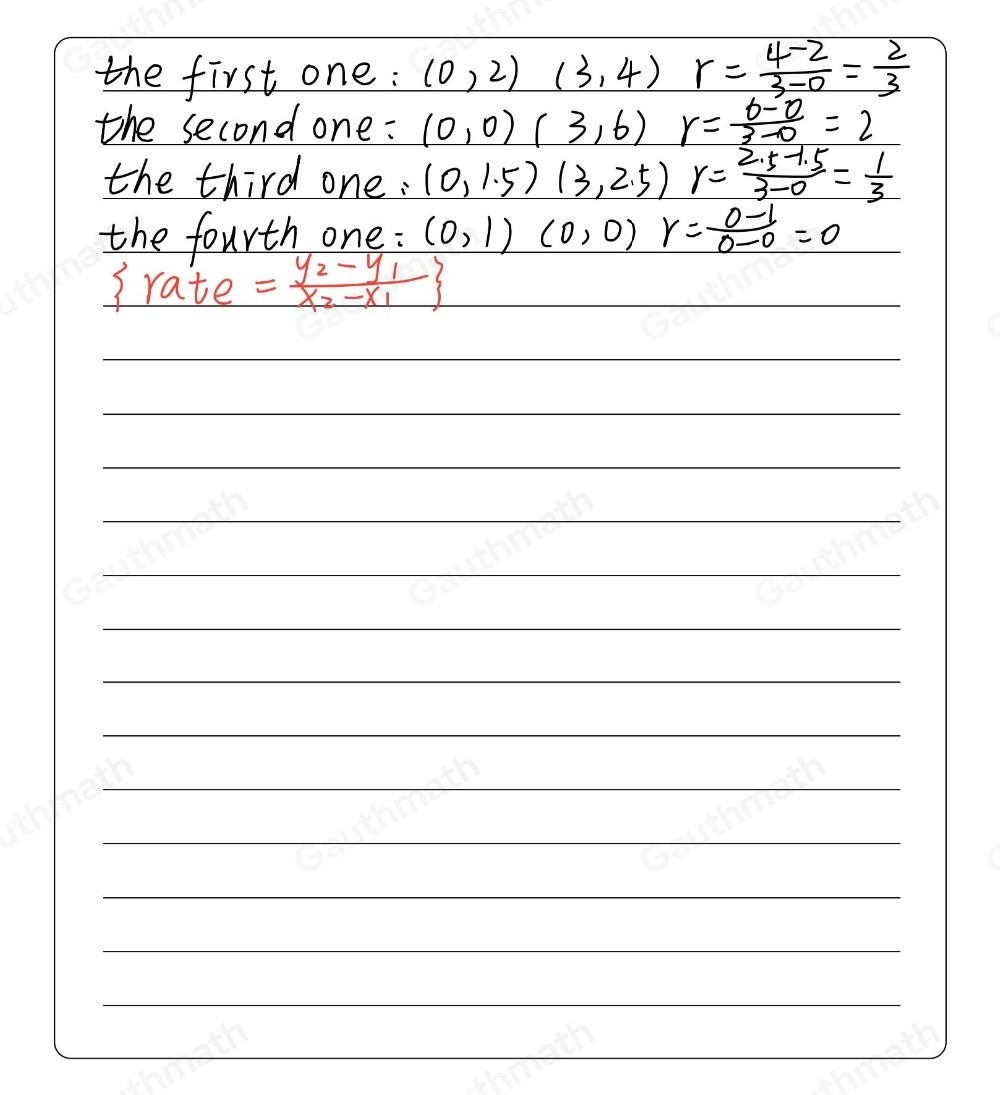 the first one: (0,2) (3,4) r = \frac{4-2}{3-0} = \frac{2}{3}
the second one: (0,0) (3,6) r = \frac{6-0}{3-0} = 2
the third one: (0,1.5) (3,2.5) r = \frac{2.5-1.5}{3-0} = \frac{1}{3}
the fourth one: (0,1) (0,0) r = \frac{0-1}{0-0} = 0
{rate = \frac{y₂-y₁}{x₂-x₁}}